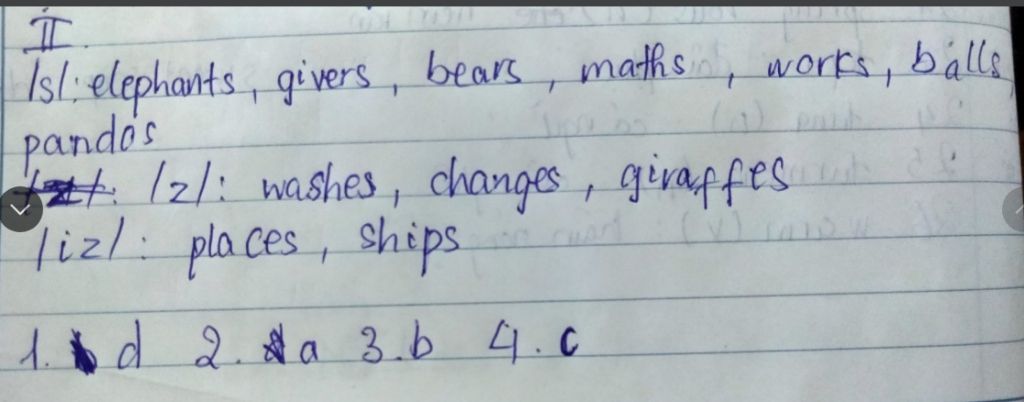 II.
/s/: elephants, givers, bears, maths, works, balls
pandas
/z/: washes, changes, giraffes
/iz/: places, ships
1. d 2. a 3. b 4. c